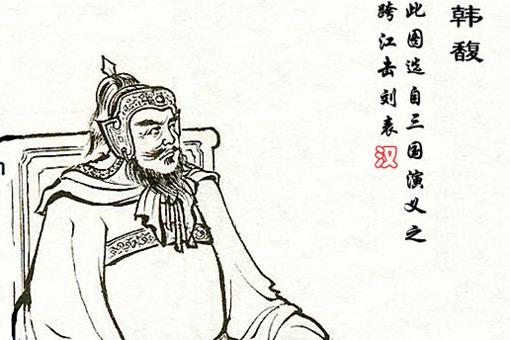 韩馥
此图选自三国演义之
跨江击刘表
汉